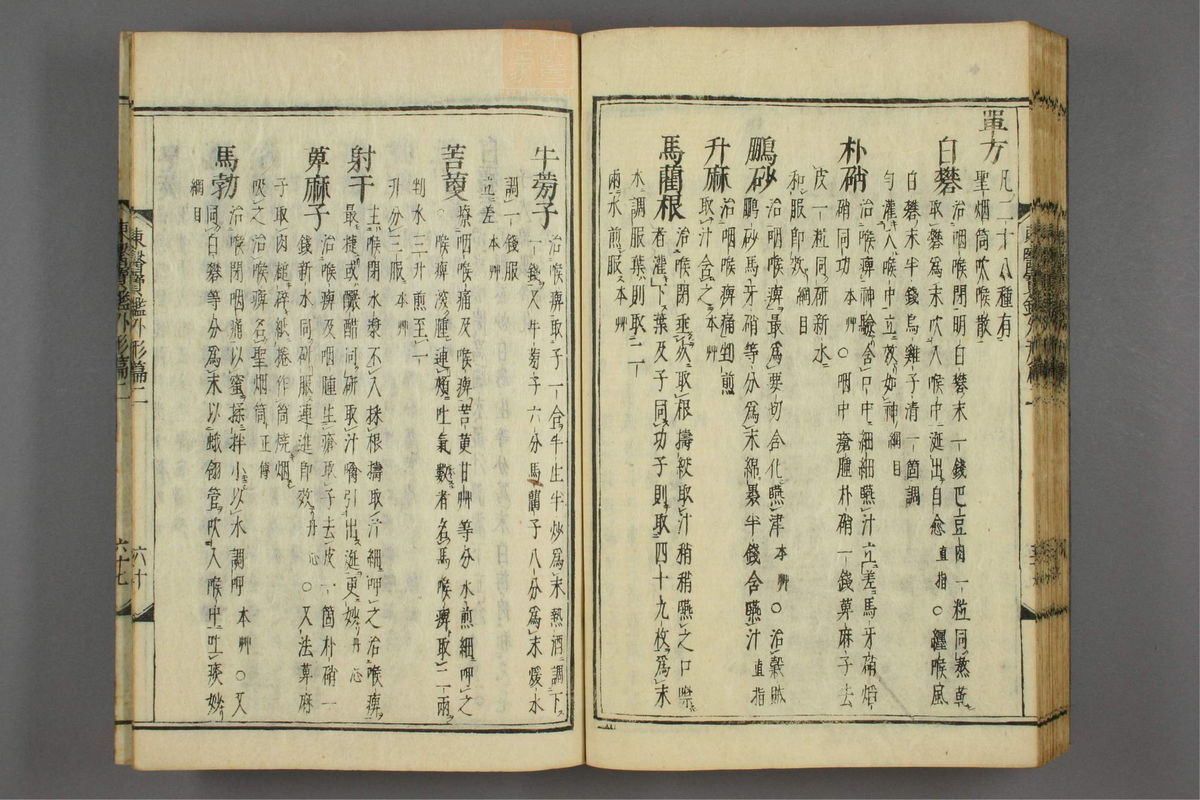 單方
凡二十八種有
聖烟筒吹喉散
白礬
治咽喉閉明白礬末一錢巴豆肉一粒同熬乾
取礬爲末吹入喉中涎出自愈 直指 ○纏喉風
白礬末半錢烏雞子清一箇調
勻灌入喉中立效如神 綱目
朴硝
治喉痺神驗含口中細細嚥汁立差馬牙硝焰
硝同功 本艸 ○咽中瘡腫朴硝一錢萆麻子去
皮一粒同硏新水
和服即效 綱目
鵬砂
治咽喉痺最爲要切含化嚥津 本艸 ○治穀賊
鵬砂馬牙硝等分爲末綿裹半錢含嚥汁 直指
升麻
治咽喉痺痛剉煎
取汁含之 本艸
馬藺根
治喉閉垂死取根擣絞取汁稍稍嚥之口噤
者灌下葉及子同功子則取四十九枚爲末
水調服葉則取二
兩水煎服 本艸
牛蒡子
治喉痺取子一合半生半炒爲末熱酒調下
一錢又牛蒡子六分馬藺子八分爲末煖水
調一錢服
立差 本艸
苦蕒
療咽喉痛及喉痺苦蕒甘艸等分水煎細呷之
○喉痺腫連頰吐氣數者名馬喉痺取一兩
剉水三升煎至一
升分三服 本艸
射干
主喉閉水漿不入採根擣取汁細呷之治喉痺
最捷或釅醋同硏取汁噙引出涎更妙 丹心
萆麻子
治喉痺及咽腫生瘡取子去皮一箇朴硝一
錢新水同硏服連進即效 丹心 ○又法萆麻
子取肉槌碎紙捲作筒燒烟
吸之治喉痺名聖烟筒 正傳
馬勃
治喉閉咽痛以蜜揉拌小以水調呷 本艸 ○又
同白礬等分爲末以蛾翎管吹入喉中吐痰妙
綱目
東醫寶鑑外形篇二
六十
六十七